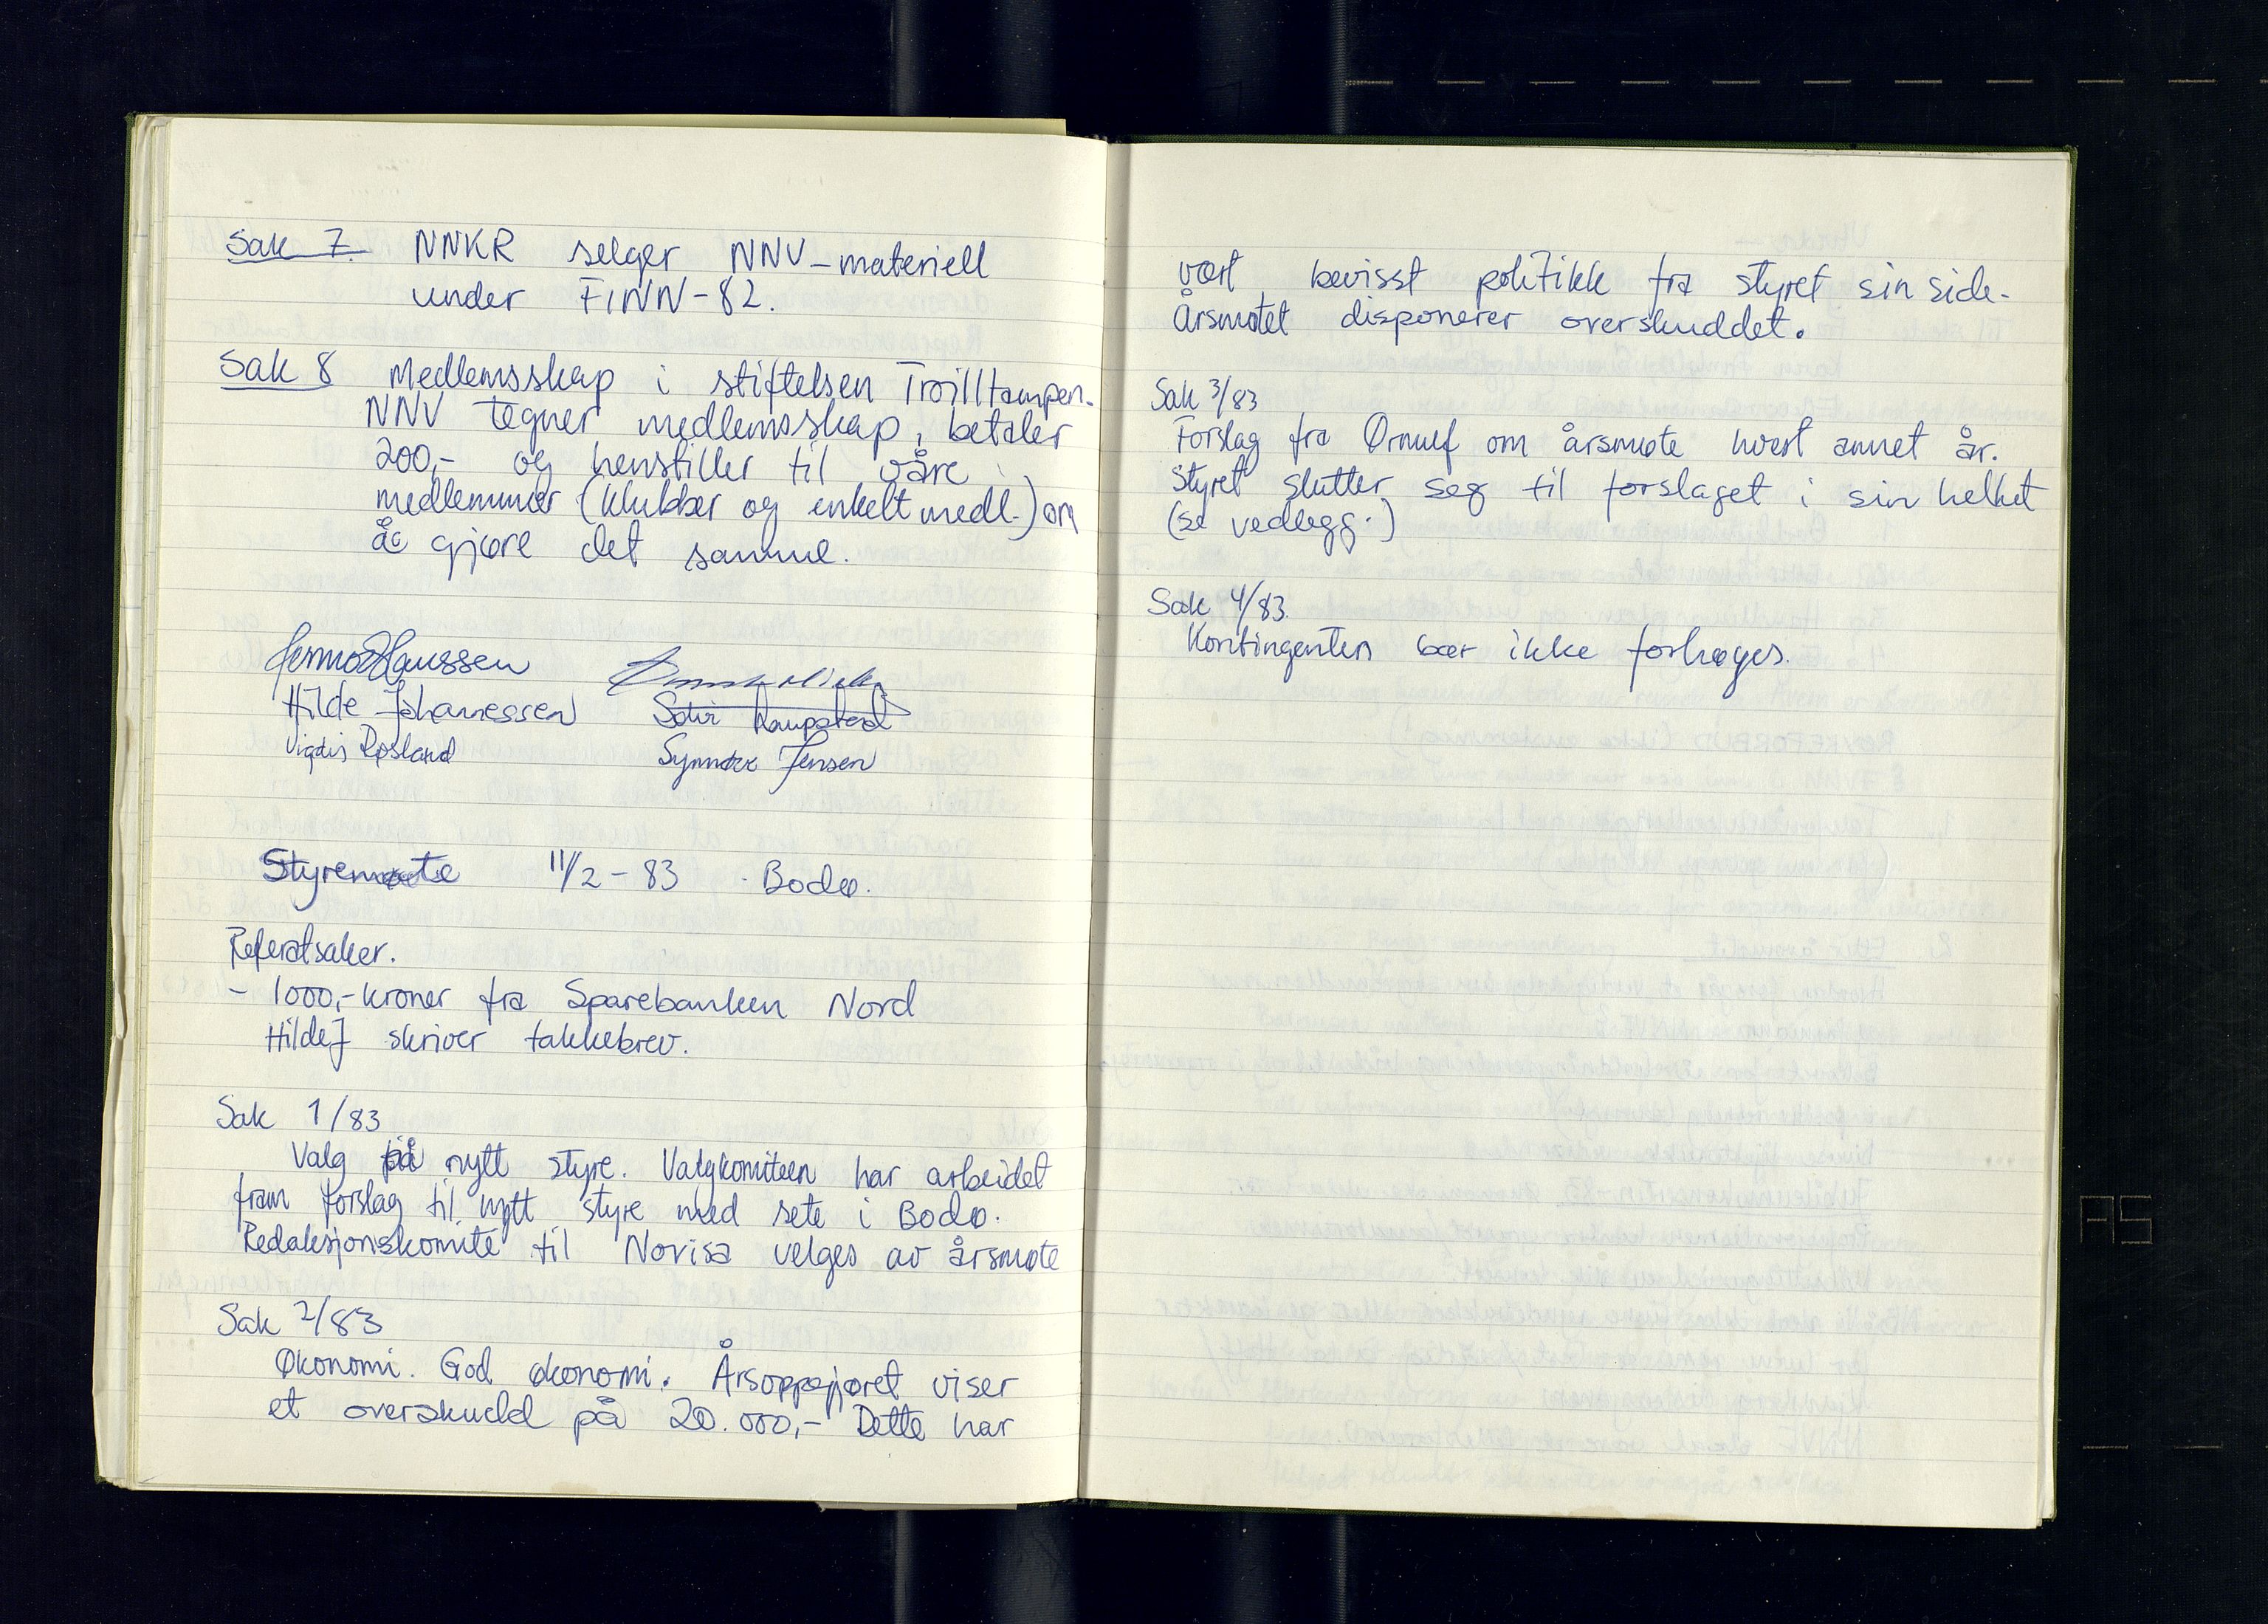 Sak 7. NNKR selger NNV-materiell
under FINN-82.
Sak 8 Medlemsskap i stiftelsen Trolltampen.
NNV tegner medlemsskap, betaler
200,- og henstiller til våre
medlemmer (klubber og enkeltmedl.) om
å gjøre det samme.
Hermod Haussen
Hilde Johanessen
Vigdis Røsland
Synnøve Jensen
Styremøte 11/2-83 Bodø.
Referatsaker.
- 1000,- kroner fra Sparebanken Nord
Hilde J skriver takkebrev.
Sak 1/83
Valg på nytt styre. Valgkomiteen har arbeidet
fram forslag til nytt styre med sete i Bodø.
Redaksjonskomite til Norisa velges av årsmøte
Sak 2/83
Økonomi. God økonomi. Årsoppgjøret viser
et overskudd på 20.000,- Dette har
vært bevisst politikk fra styret sin side.
Årsmøtet disponerer overskuddet.
Sak 3/83
Forslag fra Ørnulf om årsmøte hvert annet år.
Styret slutter seg til forslaget i sin helhet
(se vedlegg.)
Sak 4/83.
Kontingenten bør ikke forhøyes.
AS